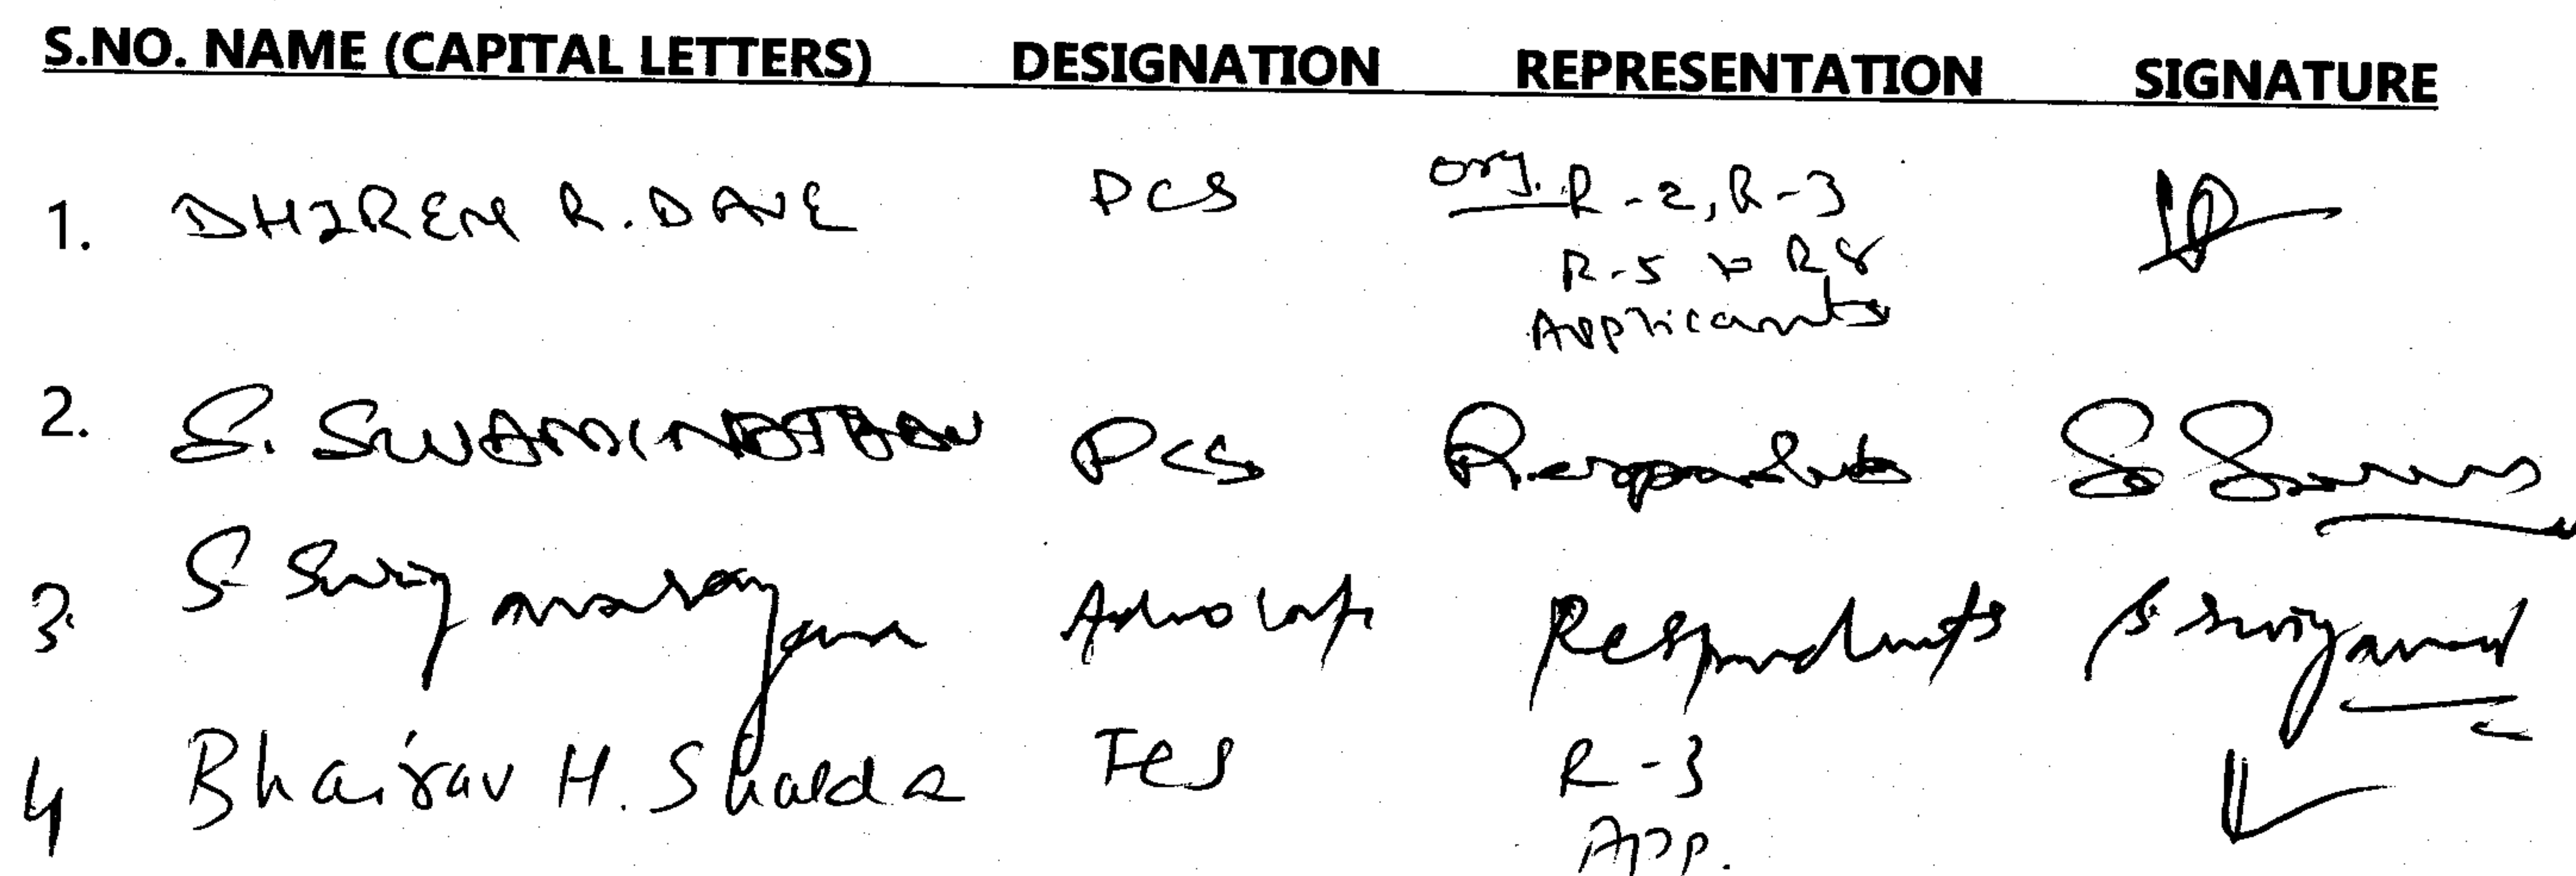 S.NO. NAME (CAPITAL LETTERS) DESIGNATION REPRESENTATION SIGNATURE
1. DHIREN R. DAVE PCS Org. R-2, R-3
R-5 to R8
Applicants
2. S. SWAMINATHAN PCS Respondents
3. S Suriyanarayanan Advocate Respondents
4 Bhairav H. Shukla FCS R-3
App.